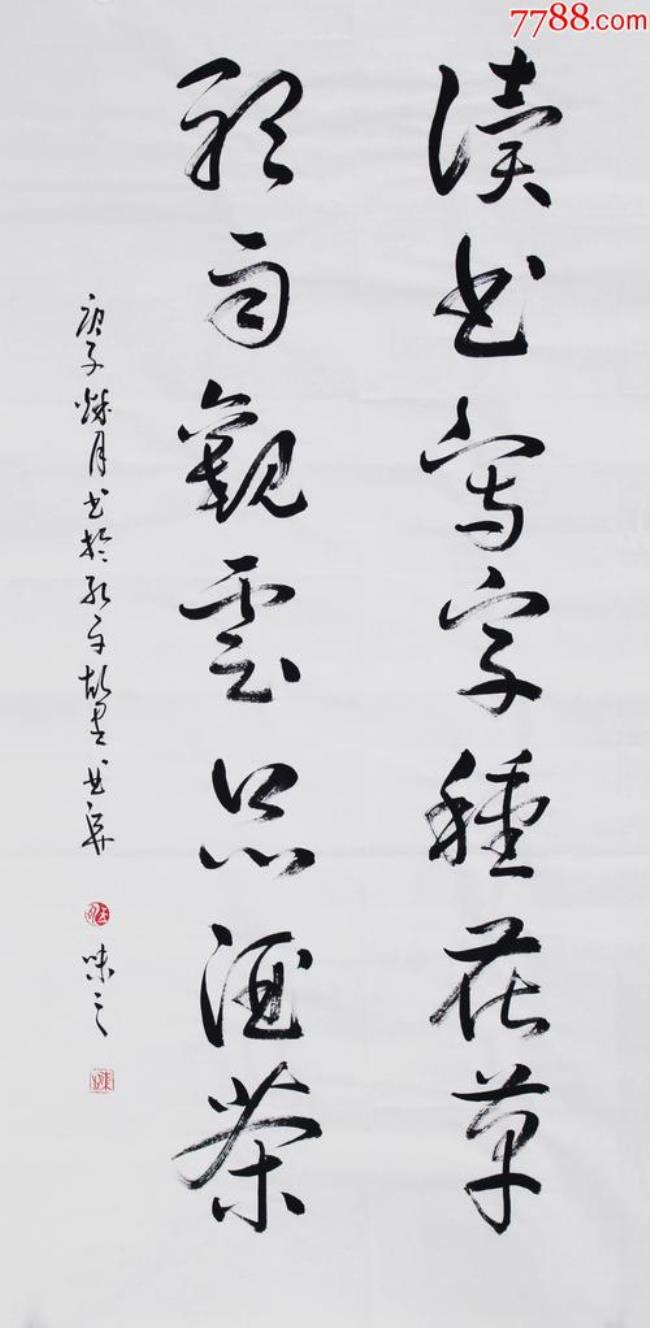 7788.com
读书写字種花草
听雨觀雲品酒茶
庚子燦月书於孔子故里曲阜
味之